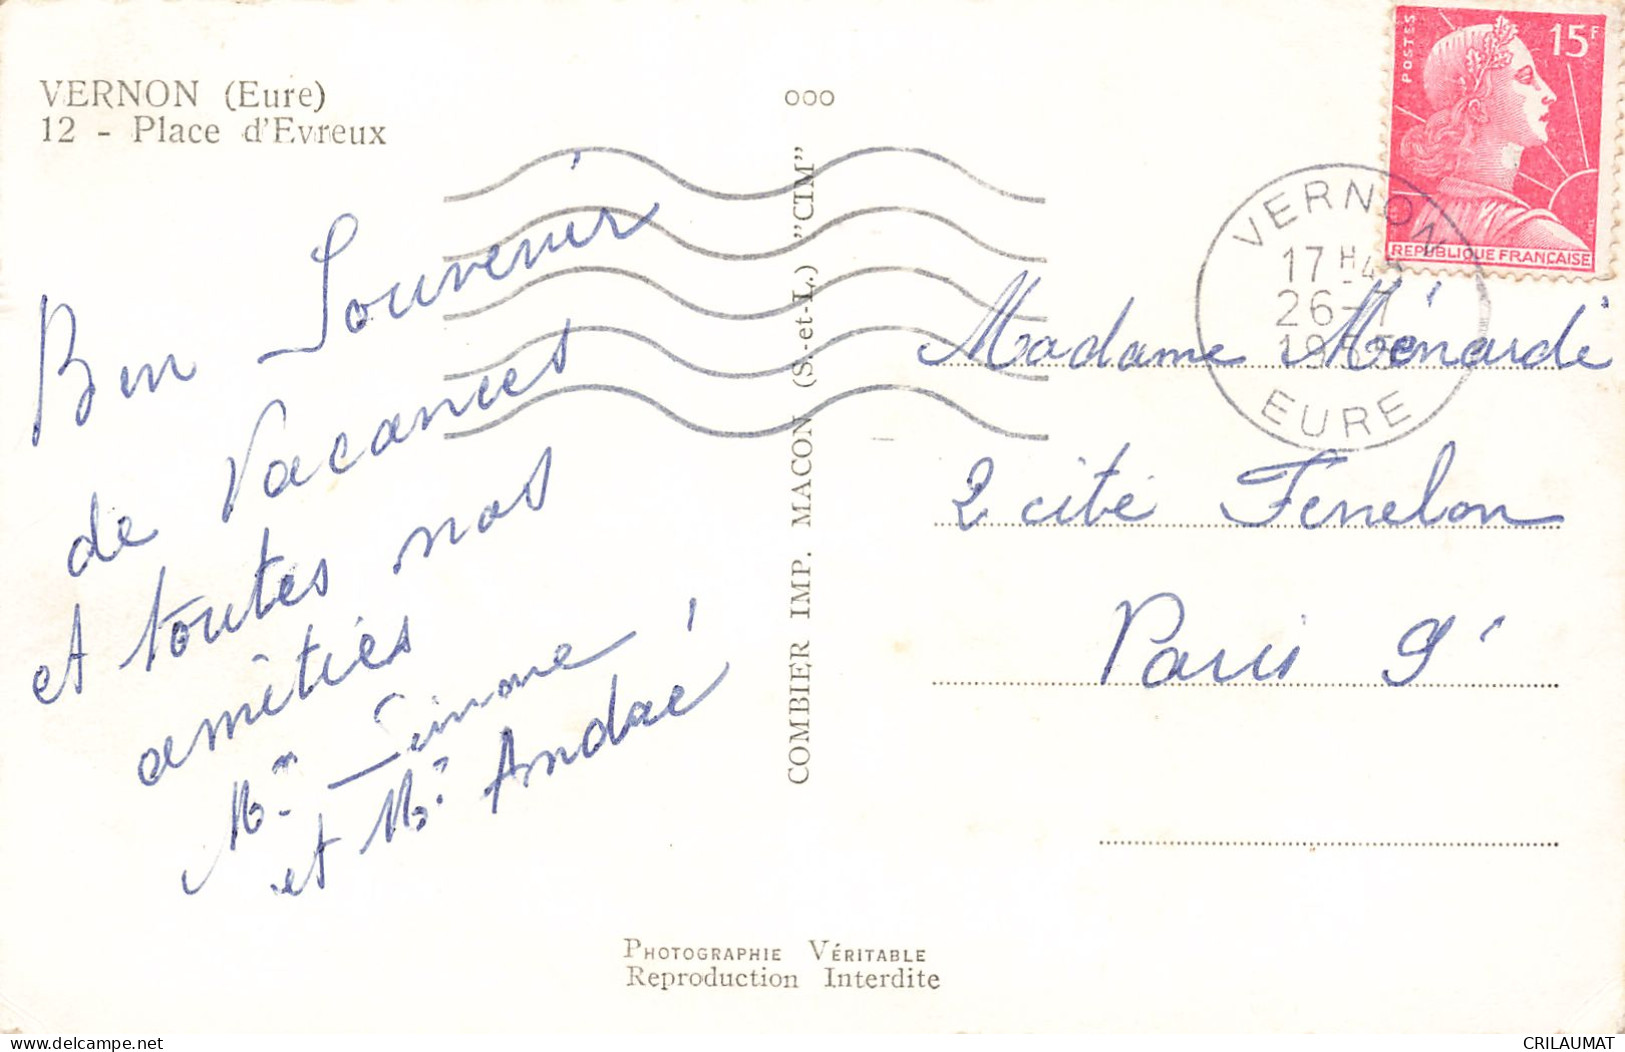 VERNON (Eure)
12 - Place d'Evreux
Bon Souvenir
de Vacances
et toutes nos
amitiés
Mme Simone
et Mr André
ooo
COMBIER IMP. MACON (S.-et-L.) "CIM"
POSTES
15F
REPUBLIQUE FRANÇAISE
VERNON
17 H 45
26-7
EURE
Madame
2 cité Fenelon
Paris 9e
PHOTOGRAPHIE VÉRITABLE
Reproduction Interdite
delcampe.net
CRILAUMAT